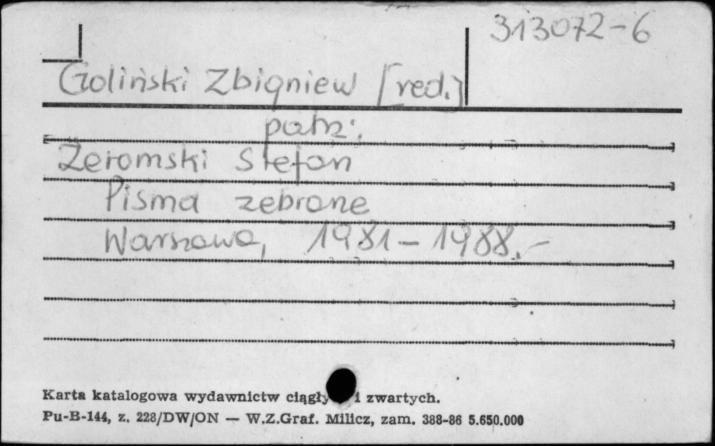 313072-6
Goliński Zbigniew [red.]
patrz:
Żeromski Stefan
Pisma zebrane
Warszawa, 1981-1988.-
Karta katalogowa wydawnictw ciągły i zwartych.
Pu-B-144, z. 228/DW/ON — W.Z.Graf. Milicz, zam. 388-86 5.650.000